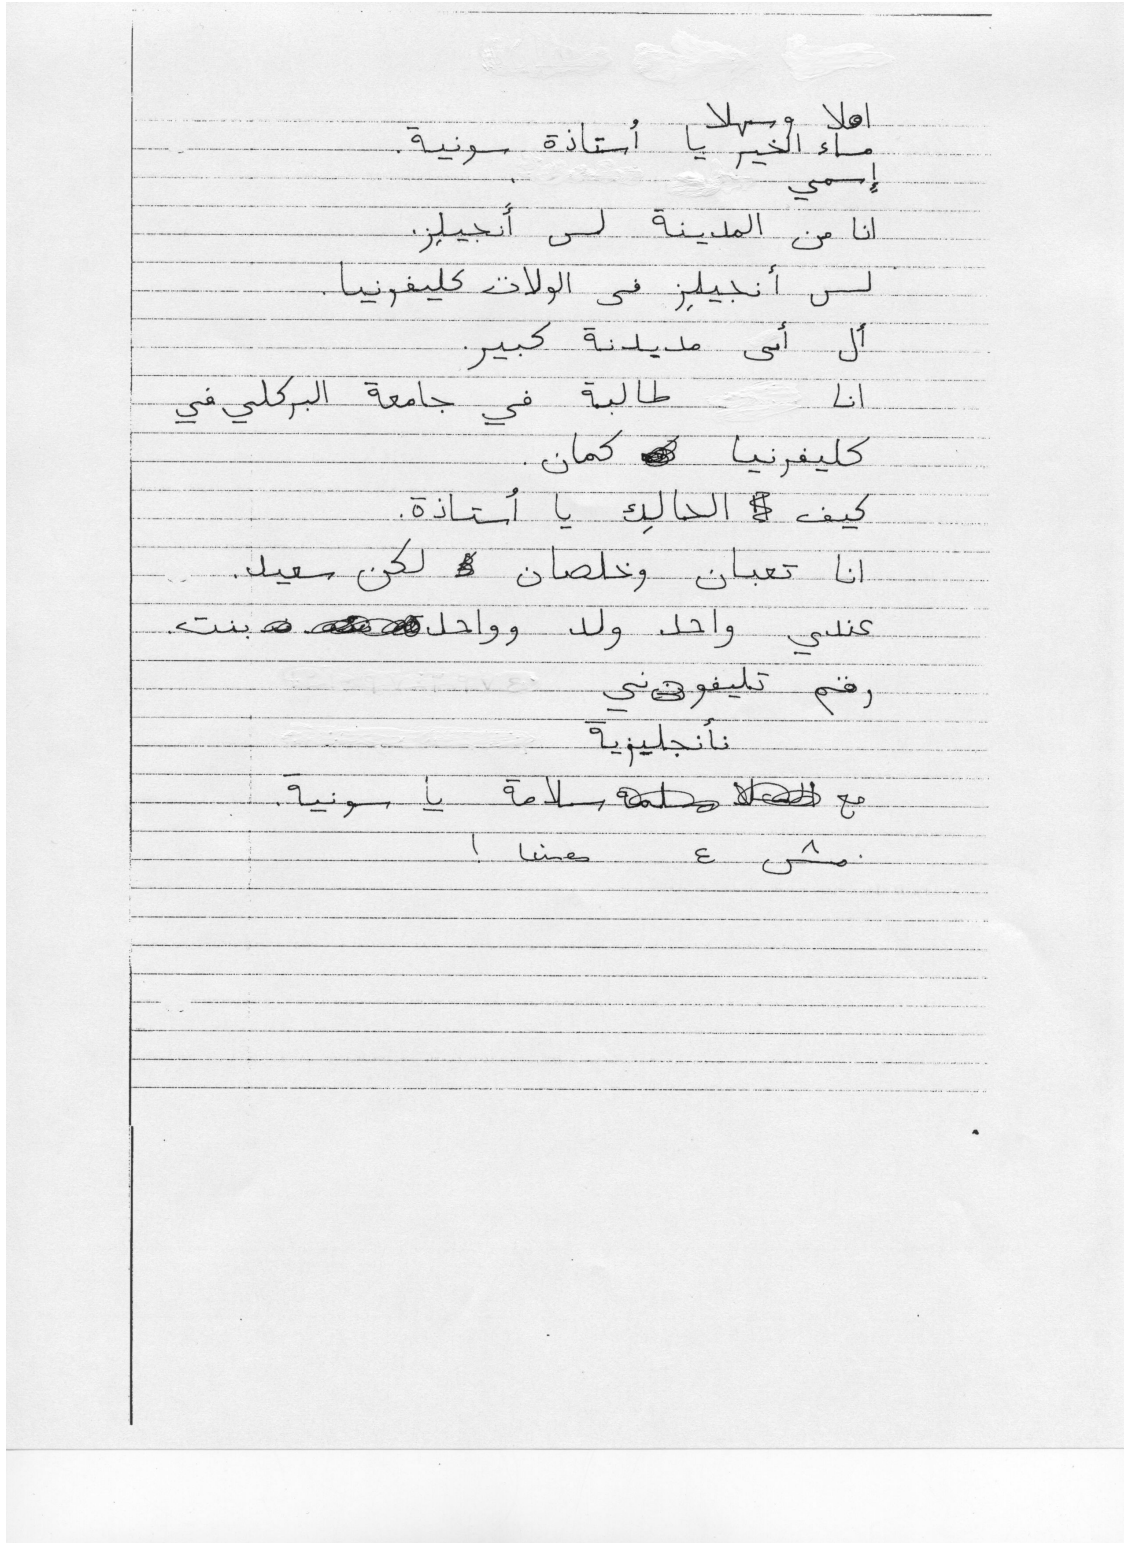 اهلا وسهلا
مساء الخير يا أُستاذة سونية.
إسمي .
انا من المدينة لس أنجيلز.
لس أنجيلز في الولات كليفونيا.
أل أى مديدنة كبير.
انا طالبة في جامعة البركلي في
كليفرنيا كمان.
كيف الحالِك يا أُستاذة.
انا تعبان وخلصان لكن سعيد.
عندي واحد ولد وواحد بنت.
رقم تليفوني
نأنجليزية
مع سلامة يا سونية.
مش ٤ !